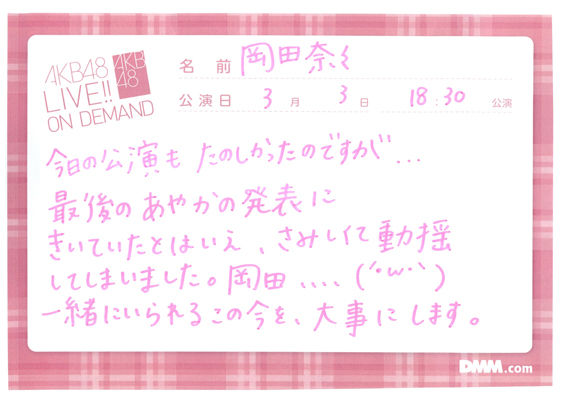 AKB48
LIVE!!
ON DEMAND
AKB
48
名 前 岡田奈々
公演日 3月 3日 18:30 公演
今日の公演も たのしかったのですが...
最後の あやかの発表に
きいていたとはいえ、さみしくて動揺
してしまいました。岡田、、、、(´・ω・`)
一緒にいられるこの今を、大事にします。
DMM.com